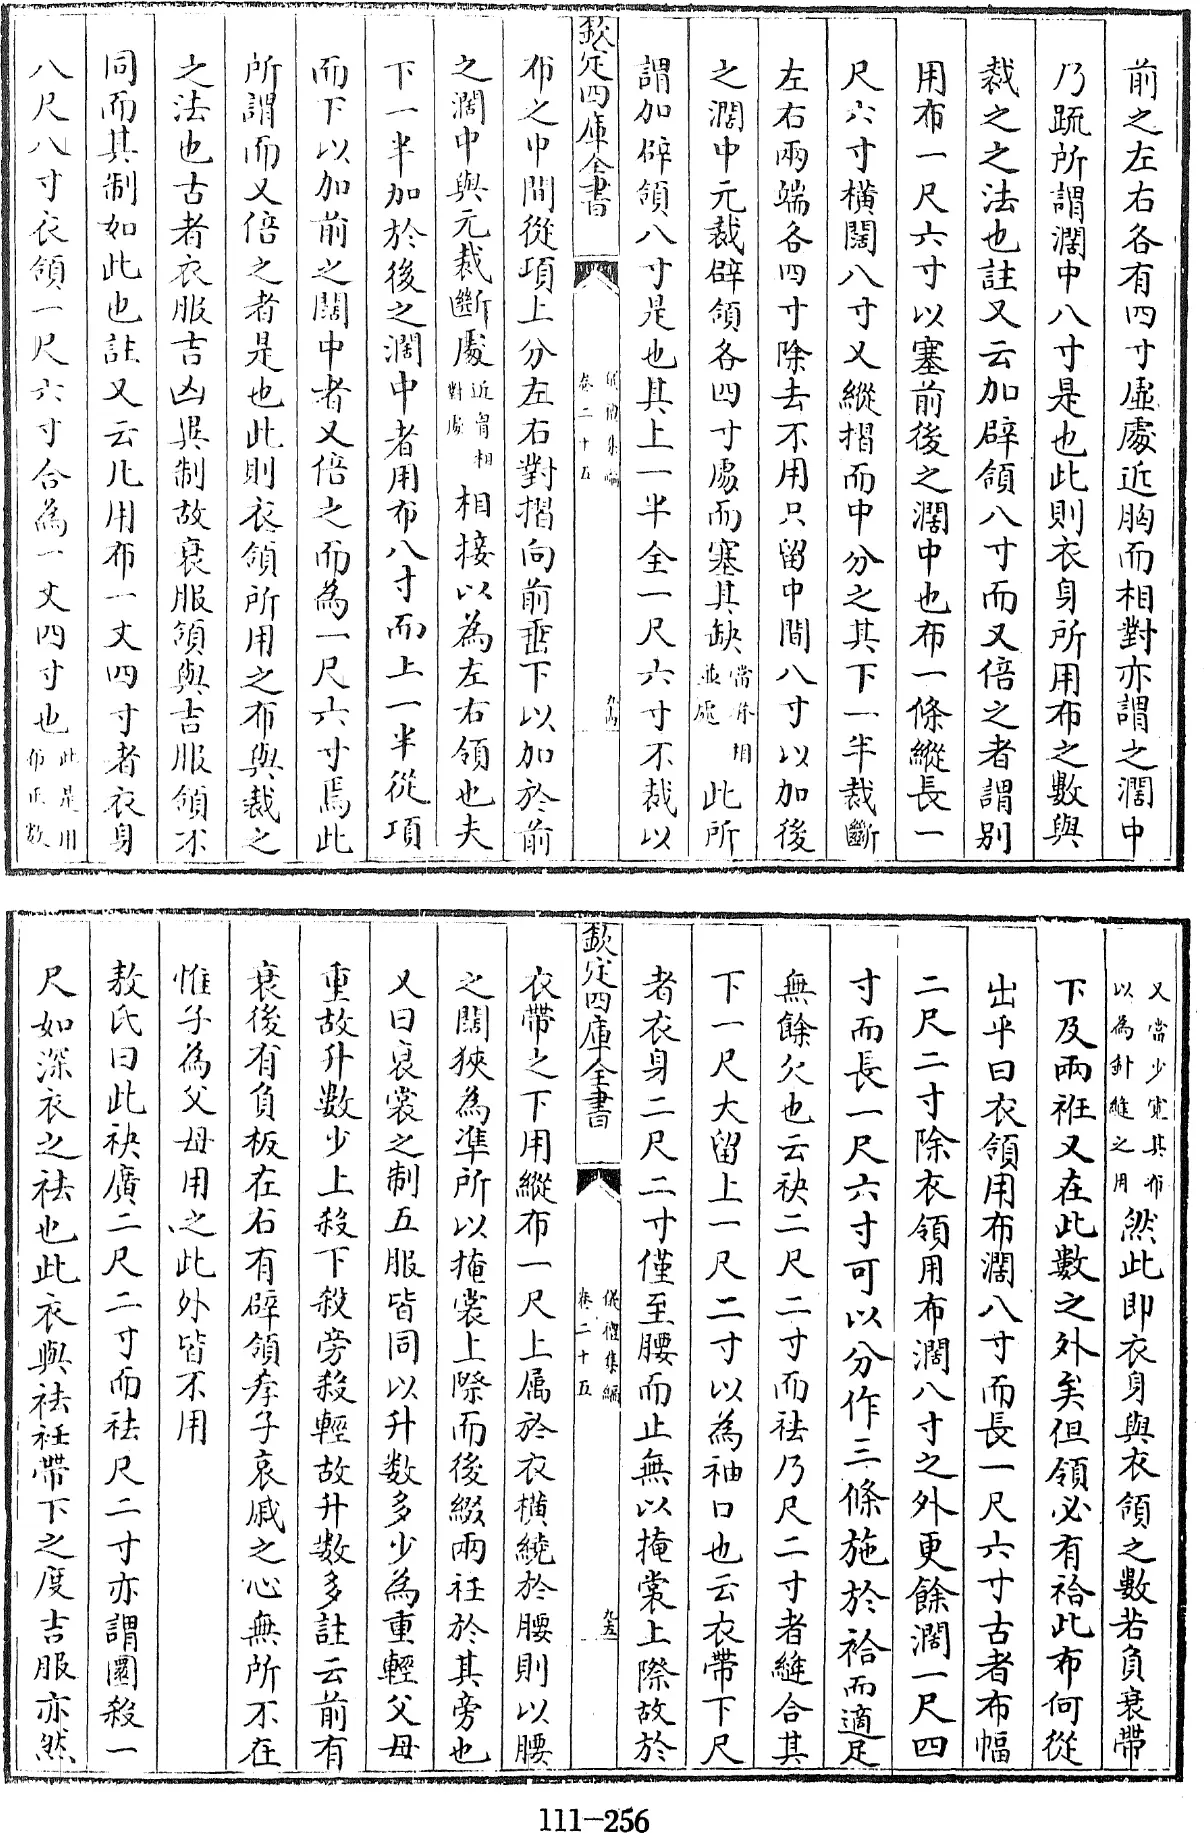 前之左右各有四寸虛處近胸而相對亦謂之濶中
乃疏所謂濶中八寸是也此則衣身所用布之數與
裁之之法也註又云加辟領八寸而又倍之者謂别
用布一尺六寸以塞前後之濶中也布一條縱長一
尺六寸橫闊八寸又縱摺而中分之其下一半裁斷
左右兩端各四寸除去不用只留中間八寸以加後
之濶中元裁辟領各四寸處而塞其缺當脊相並處此所
謂加辟領八寸是也其上一半全一尺六寸不裁以
欽定四庫全書
儀禮集編
卷二十五
布之中間從項上分左右對摺向前垂下以加於前
之濶中與元裁斷處近胷相對處相接以為左右領也夫
下一半加於後之濶中者用布八寸而上一半從項
而下以加前之闊中者又倍之而為一尺六寸焉此
所謂而又倍之者是也此則衣領所用之布與裁之
之法也古者衣服吉凶異制故衰服領與吉服領不
同而其制如此也註又云凡用布一丈四寸者衣身
八尺八寸衣領一尺六寸合為一丈四寸也此是用布正數
又當少寛其布以為針縫之用然此即衣身與衣領之數若負衰帶
下及兩衽又在此數之外矣但領必有袷此布何從
出乎曰衣領用布濶八寸而長一尺六寸古者布幅
二尺二寸除衣領用布濶八寸之外更餘濶一尺四
寸而長一尺六寸可以分作三條施於袷而適足
無餘欠也云袂二尺二寸而袪乃尺二寸者縫合其
下一尺大留上一尺二寸以為袖口也云衣帶下尺
者衣身二尺二寸僅至腰而止無以掩裳上際故於
欽定四庫全書
儀禮集編
卷二十五
九五
衣帶之下用縱布一尺上属於衣橫繞於腰則以腰
之闊狹為凖所以掩裳上際而後綴兩衽於其旁也
又曰衰裳之制五服皆同以升数多少為重輕父母
重故升數少上殺下殺旁殺輕故升數多註云前有
衰後有負板在右有辟領孝子哀戚之心無所不在
惟子為父母用之此外皆不用
敖氏曰此袂廣二尺二寸而袪尺二寸亦謂圜殺一
尺如深衣之袪也此衣與袪衽帶下之度吉服亦然
111-256